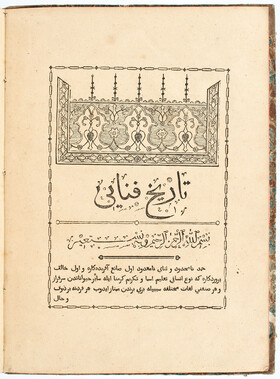 تاريخ فنايى
بسم الله الرحمن الرحيم وبه نستعين
حمد نامحدود و ثناى نامعدود اول صانع آفريدكاره و اول خالق
پروردكاره كه نوع انسانى تعليم اسما و تكريم كرمنا ايله سائر حيواناتدن سرفراز
و هر صنفى لغات مختلفه سيله برى برندن ممتاز ايدوب هر فردنه بر ذوق
و حال